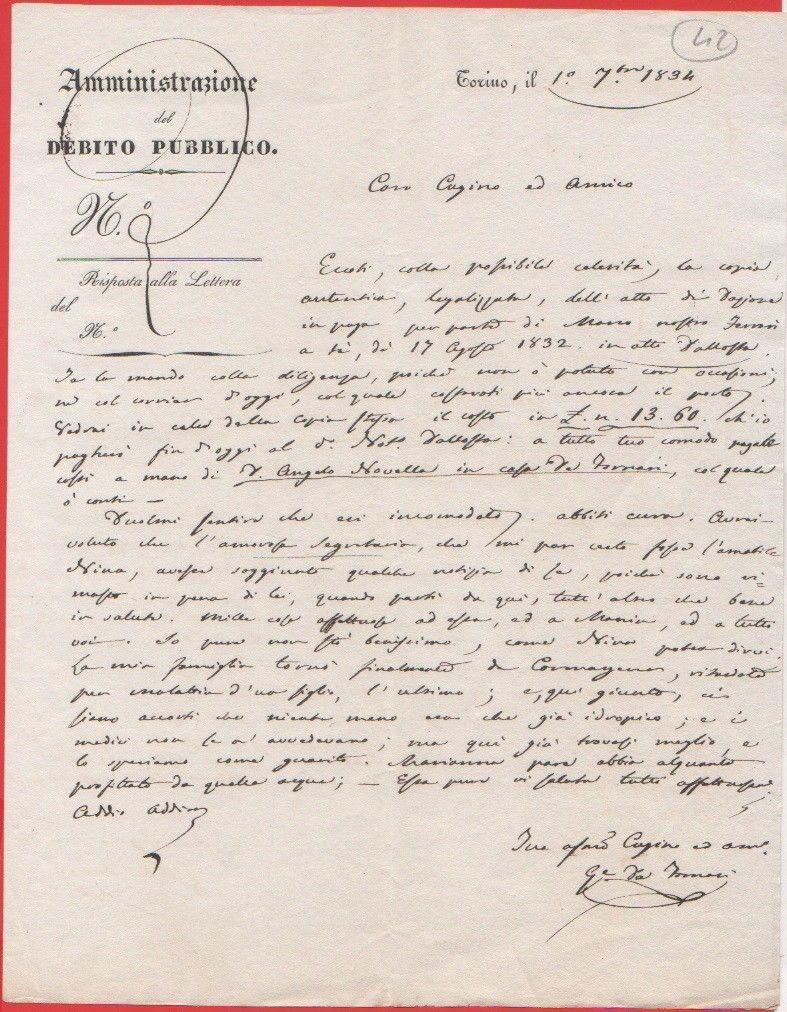 42
Amministrazione
del
DEBITO PUBBLICO.
N.º
Risposta alla Lettera
del
N.º
Torino, il 1º 7bre 1834
Caro Cugino ed Amico
Eccoti, colla possibile celerità, la copia
autentica, legalizzata, dell'atto di Dazione
in paga per parte di Marco nostro Ferrari
a te, de 17 Agosto 1832. in atti Dallosta.
Te la mando colla diligenza, poiché non ò potuto con occasioni,
nè col corriere d'oggi, col quale costavati più ancora il porto.
Vedrai in calce della Copia stessa il costo in £. n. 13.60. ch'io
pagherò fin d'oggi al Sr. Not. Dallosta: a tutto tuo comodo pagale
costì a mano di D. Angelo Novella in casa De Fornari, col quale
ò conti —
Duolmi sentire che eri incomodato. abbiti cura. Avrei
voluto che l'amorosa Segretaria, che mi par certo fosse l'amabile
Nina, avesse soggiunto qualche notizia di se, poiché sono ri=
masto in pena di lei, quando partì da qui, tutt'altro che bene
in salute. Mille cose affettuose ad essa, ed a Manin, ed a tutti
voi. Io pure non stò benissimo, come Nina potea dirvi.
La mia famiglia tornò finalmente da Cormayeur, ritardata
per malattia d'un figlio, l'ultimo; e, qui giunto, ci
siamo accorti che niente meno era che già idropico; e i
medici non se n'avvedevano; ma qui già trovasi meglio, e
lo speriamo come guarito. Marianna pare abbia alquanto
profittato da quelle acque; — Essa pure vi saluta tutti affettuosa.
Addio Addio
Tuo Cugino ed am.º
De Fornari